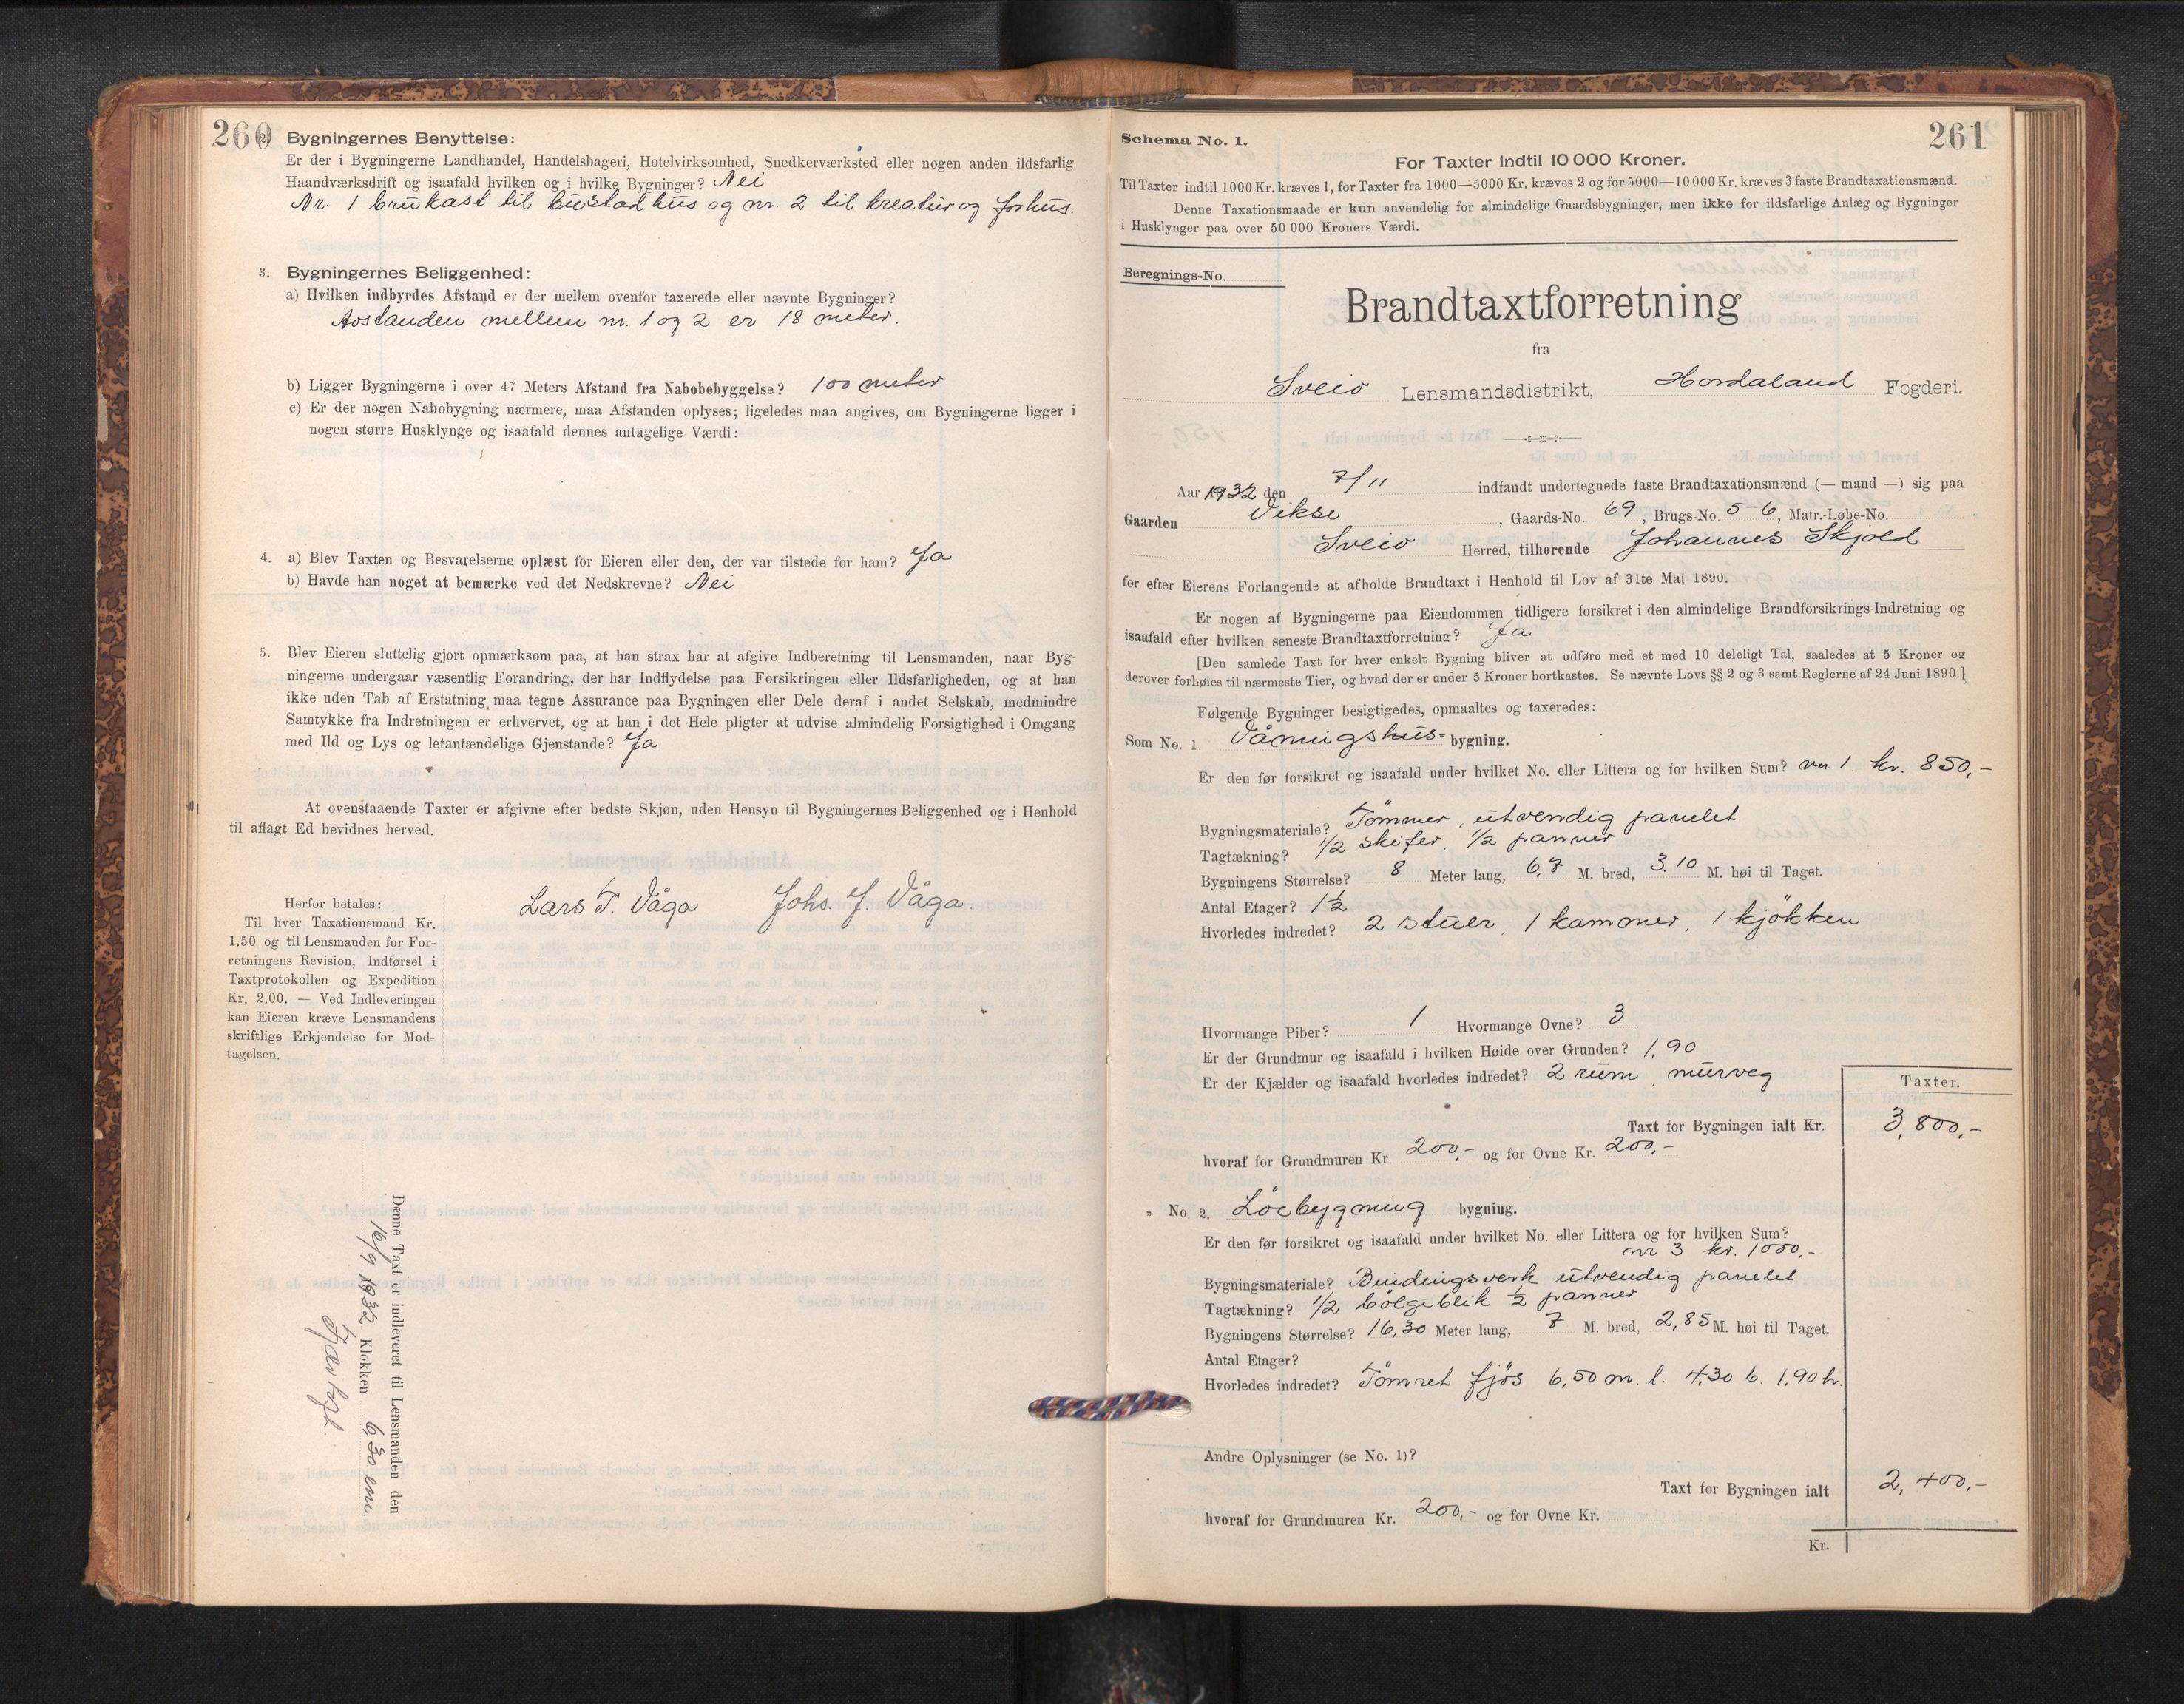 260
2. Bygningernes Benyttelse:
Er der i Bygningerne Landhandel, Handelsbageri, Hotelvirksomhed, Snedkerværksted eller nogen anden ildsfarlig
Haandværksdrift og isaafald hvilken og i hvilke Bygninger? Nei
Nr. 1 brukast til bustadhus og nr. 2 til kreatur og forhus.
3. Bygningernes Beliggenhed:
a) Hvilken indbyrdes Afstand er der mellem ovenfor taxerede eller nævnte Bygninger?
Avstanden mellem nr. 1 og 2 er 18 meter.
b) Ligger Bygningerne i over 47 Meters Afstand fra Nabobebyggelse? 100 meter
c) Er der nogen Nabobygning nærmere, maa Afstanden oplyses; ligeledes maa angives, om Bygningerne ligger i
nogen større Husklynge og isaafald dennes antagelige Værdi:
4. a) Blev Taxten og Besvarelserne oplæst for Eieren eller den, der var tilstede for ham? Ja
b) Havde han noget at bemærke ved det Nedskrevne? Nei
5. Blev Eieren sluttelig gjort opmærksom paa, at han strax har at afgive Indberetning til Lensmanden, naar Byg-
ningerne undergaar væsentlig Forandring, der har Indflydelse paa Forsikringen eller Ildsfarligheden, og at han
ikke uden Tab af Erstatning maa tegne Assurance paa Bygningen eller Dele deraf i andet Selskab, medmindre
Samtykke fra Indretningen er erhvervet, og at han i det Hele pligter at udvise almindelig Forsigtighed i Omgang
med Ild og Lys og letantændelige Gjenstande? Ja
At ovenstaaende Taxter er afgivne efter bedste Skjøn, uden Hensyn til Bygningernes Beliggenhed og i Henhold
til aflagt Ed bevidnes herved.
Lars T. Våga Johs. J. Våga.
Herfor betales:
Til hver Taxationsmand Kr.
1,50 og til Lensmanden for For-
retningens Revision, Indførsel i
Taxtprotokollen og Expedition
Kr. 2,00. — Ved Indleveringen
kan Eieren kræve Lensmandens
skriftlige Erkjendelse for Mod-
tagelsen.
Denne Taxt er indleveret til Lensmanden den
16/9 1932 Klokken 6 30 em.
261
Schema No. 1.
For Taxter indtil 10 000 Kroner.
Til Taxter indtil 1000 Kr. kræves 1, for Taxter fra 1000—5000 Kr. kræves 2 og for 5000—10 000 Kr. kræves 3 faste Brandtaxationsmænd.
Denne Taxationsmaade er kun anvendelig for almindelige Gaardsbygninger, men ikke for ildsfarlige Anlæg og Bygninger
i Husklynger paa over 50 000 Kroners Værdi.
Beregnings-No.
Brandtaxtforretning
fra
Sveio Lensmandsdistrikt, Hordaland Fogderi.
Aar 1932 den 7/11 indfandt undertegnede faste Brandtaxationsmænd (— mand —) sig paa
Gaarden Vikse, Gaards-No. 69, Brugs-No. 5-6, Matr.-Løbe-No.
Sveio Herred, tilhørende Johannes Skjold
for efter Eierens Forlangende at afholde Brandtaxt i Henhold til Lov af 31te Mai 1890.
Er nogen af Bygningerne paa Eiendommen tidligere forsikret i den almindelige Brandforsikrings-Indretning og
isaafald efter hvilken seneste Brandtaxtforretning? Ja
[Den samlede Taxt for hver enkelt Bygning bliver at udføre med et med 10 deleligt Tal, saaledes at 5 Kroner og
derover forhøies til nærmeste Tier, og hvad der er under 5 Kroner bortkastes. Se nævnte Lovs §§ 2 og 3 samt Reglerne af 24 Juni 1890.]
Følgende Bygninger besigtigedes, opmaaltes og taxeredes:
Som No. 1. Våningshus- bygning.
Er den før forsikret og isaafald under hvilket No. eller Littera og for hvilken Sum? nr. 1. kr. 850,-
Bygningsmateriale? Tömmer, utvendig panelet
Tagtækning? 1/2 skifer, 1/2 panner
Bygningens Størrelse? 8 Meter lang, 6,7 M. bred, 3.10 M. høi til Taget.
Antal Etager? 1½
Hvorledes indredet? 2 stuer, 1 kammer, 1 kjökken
Hvormange Piber? 1 Hvormange Ovne? 3
Er der Grundmur og isaafald i hvilken Høide over Grunden? 1,90
Er der Kjælder og isaafald hvorledes indredet? 2 rum, murveg
Taxter.
Taxt for Bygningen ialt Kr. 3,800,-
hvoraf for Grundmuren Kr. 200,- og for Ovne Kr. 200,-
„ No. 2. Löebygning bygning.
Er den før forsikret og isaafald under hvilket No. eller Littera og for hvilken Sum?
nr 3 kr. 1000,-
Bygningsmateriale? Bindingsverk utvendig panelet
Tagtækning? 1/2 bölgeblik ½ panner
Bygningens Størrelse? 16,30 Meter lang, 7 M. bred, 2,85 M. høi til Taget.
Antal Etager?
Hvorledes indredet? Tömret fjös 6,50 m. l. 4,30 b. 1,90 h.
Andre Oplysninger (se No. 1)?
Taxt for Bygningen ialt 2,400,-
hvoraf for Grundmuren Kr. 200,- og for Ovne Kr.
Kr.